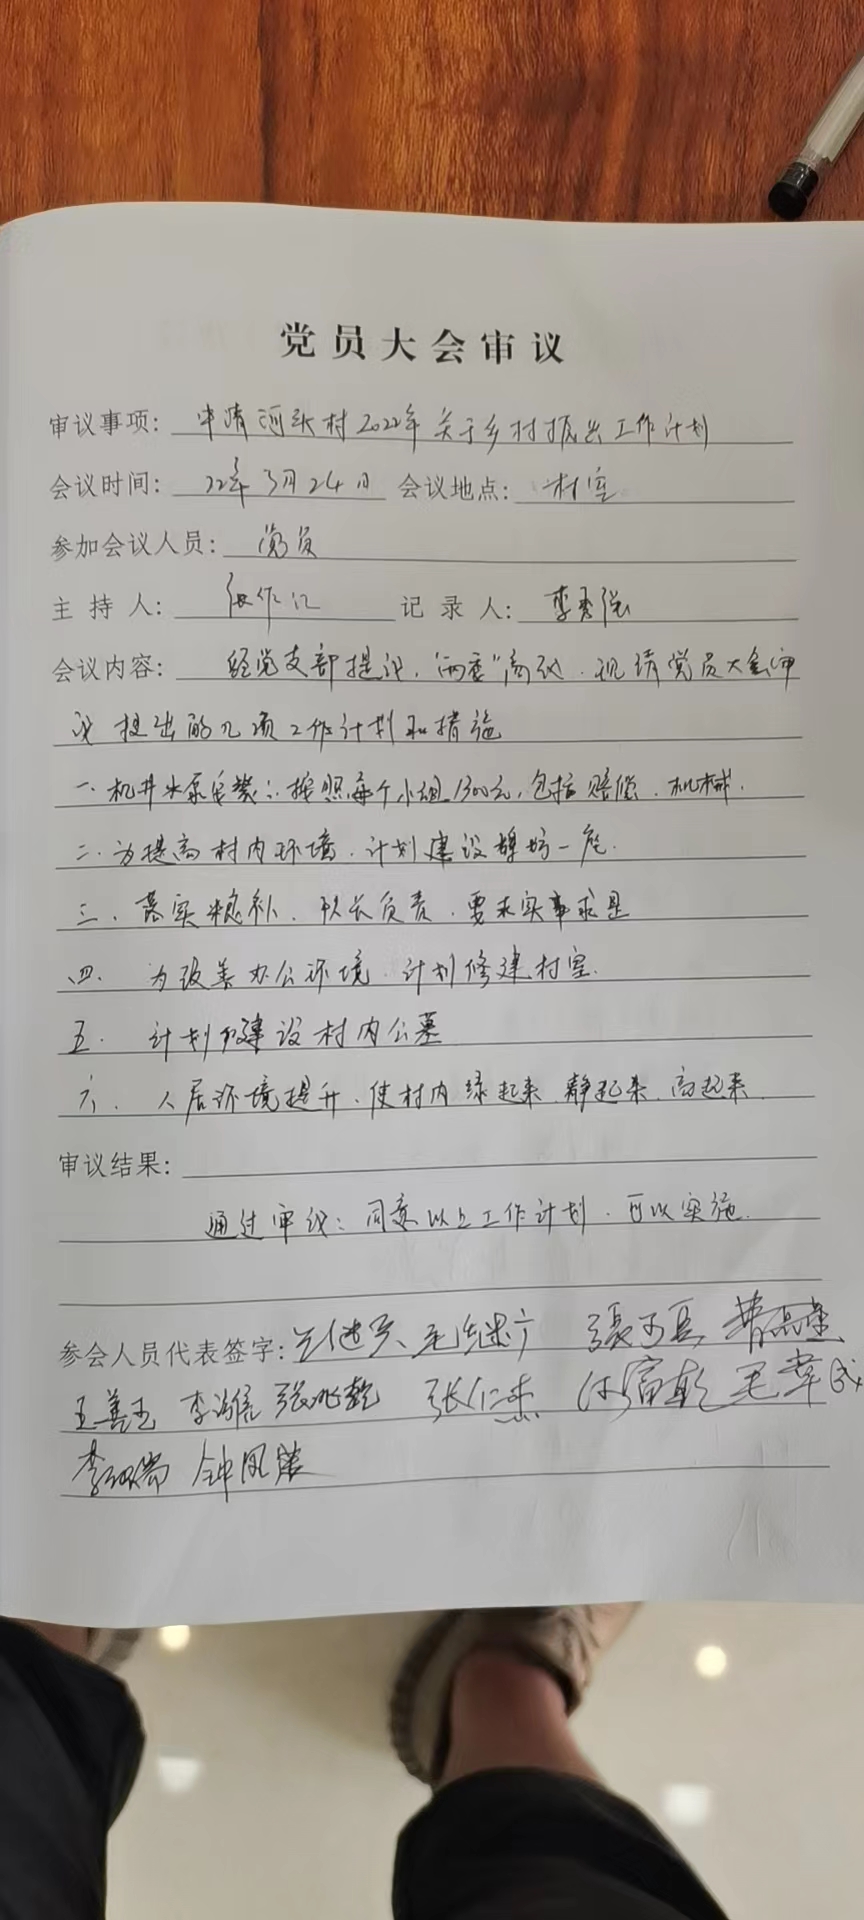 党员大会审议
审议事项: 申请河头村2022年关于乡村振兴工作计划
会议时间: 22年3月24日 会议地点: 村室
参加会议人员: 党员
主持人: 张作仁 记录人: 李秀强
会议内容: 经党支部提议,“两委”商议.现请党员大会审
议提出的几项工作计划和措施
一.机井水泵安装:按照每个小组1300元,包括赔偿.机械.
二.为提高村内环境.计划建设牌坊一座.
三.落实粮补.队长负责.要求实事求是
四.为改善办公环境.计划修建村室.
五.计划建设村内公墓
六.人居环境提升.使村内绿起来.静起来.高起来.
审议结果:
通过审议:同意以上工作计划.可以实施.
参会人员代表签字:
王善玉 张兆乾 张仁杰
钟凤